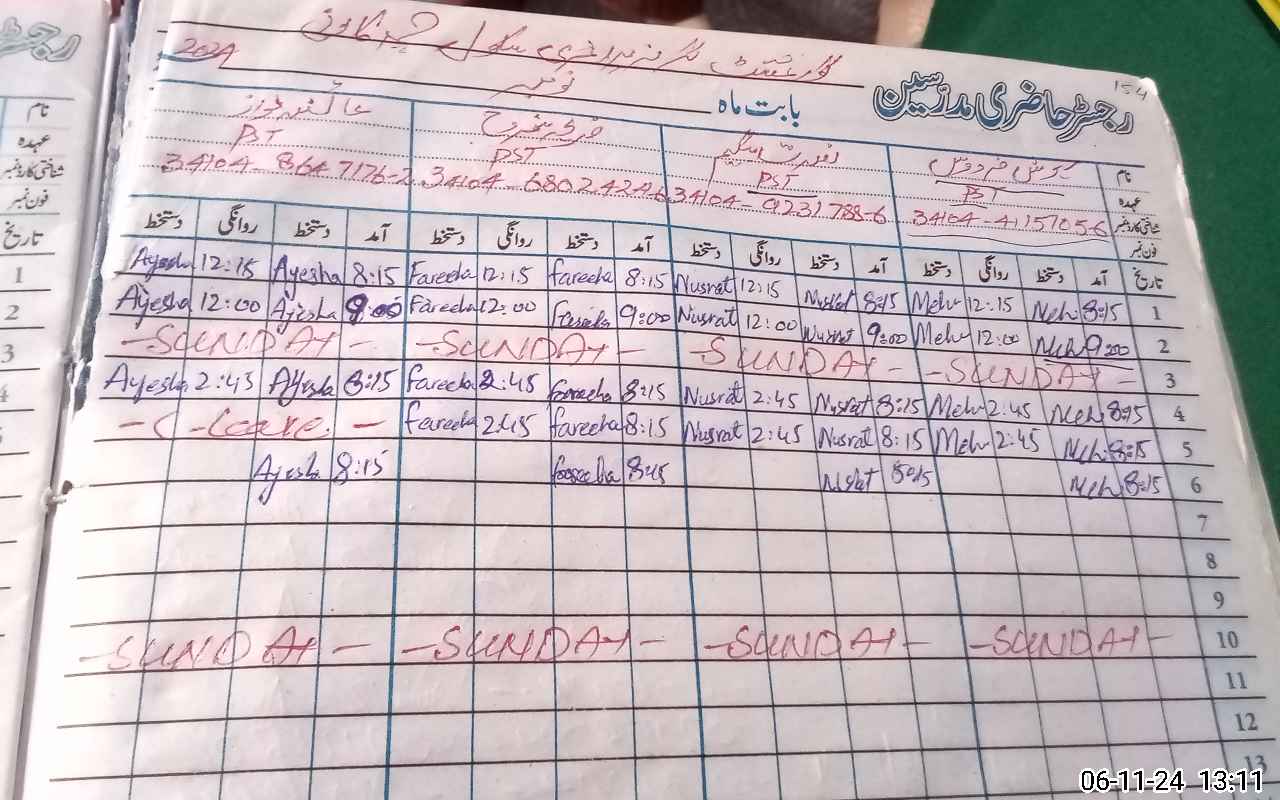 گورنمنٹ گرلز پرائمری سکول
رجسٹر حاضری مدرسین
154
بابت ماہ نومبر 2024
نام
عہدہ PST PST PST PST
شناختی کارڈ نمبر 34104-4115705-6 34104-9231788-6 34104-6802424-6 34104-8647176-2
فون نمبر
تاریخ آمد دستخط روانگی دستخط آمد دستخط روانگی دستخط آمد دستخط روانگی دستخط آمد دستخط روانگی دستخط
1 8:15 Meh 12:15 Meh 8:15 Nusrat 12:15 Nusrat 8:15 Fareeha 12:15 Fareeha 8:15 Ayesha 12:15 Ayesha
2 9:00 Meh 12:00 Meh 9:00 Nusrat 12:00 Nusrat 9:00 Fareeha 12:00 Fareeha 9:00 Ayesha 12:00 Ayesha
3 -SUNDAY- -SUNDAY- -SUNDAY- -SUNDAY-
4 8:15 Meh 2:45 Meh 8:15 Nusrat 2:45 Nusrat 8:15 Fareeha 2:45 Fareeha 8:15 Ayesha 2:45 Ayesha
5 8:15 Meh 2:45 Meh 8:15 Nusrat 2:45 Nusrat 8:15 Fareeha 2:45 Fareeha - C - Leave -
6 8:15 Meh 8:15 Nusrat 8:15 Fareeha 8:15 Ayesha
7
8
9
10 -SUNDAY- -SUNDAY- -SUNDAY- -SUNDAY-
11
12
13
رجسٹر
نام
عہدہ
شناختی کارڈ نمبر
فون نمبر
تاریخ
1
2
3
4
06-11-24 13:11